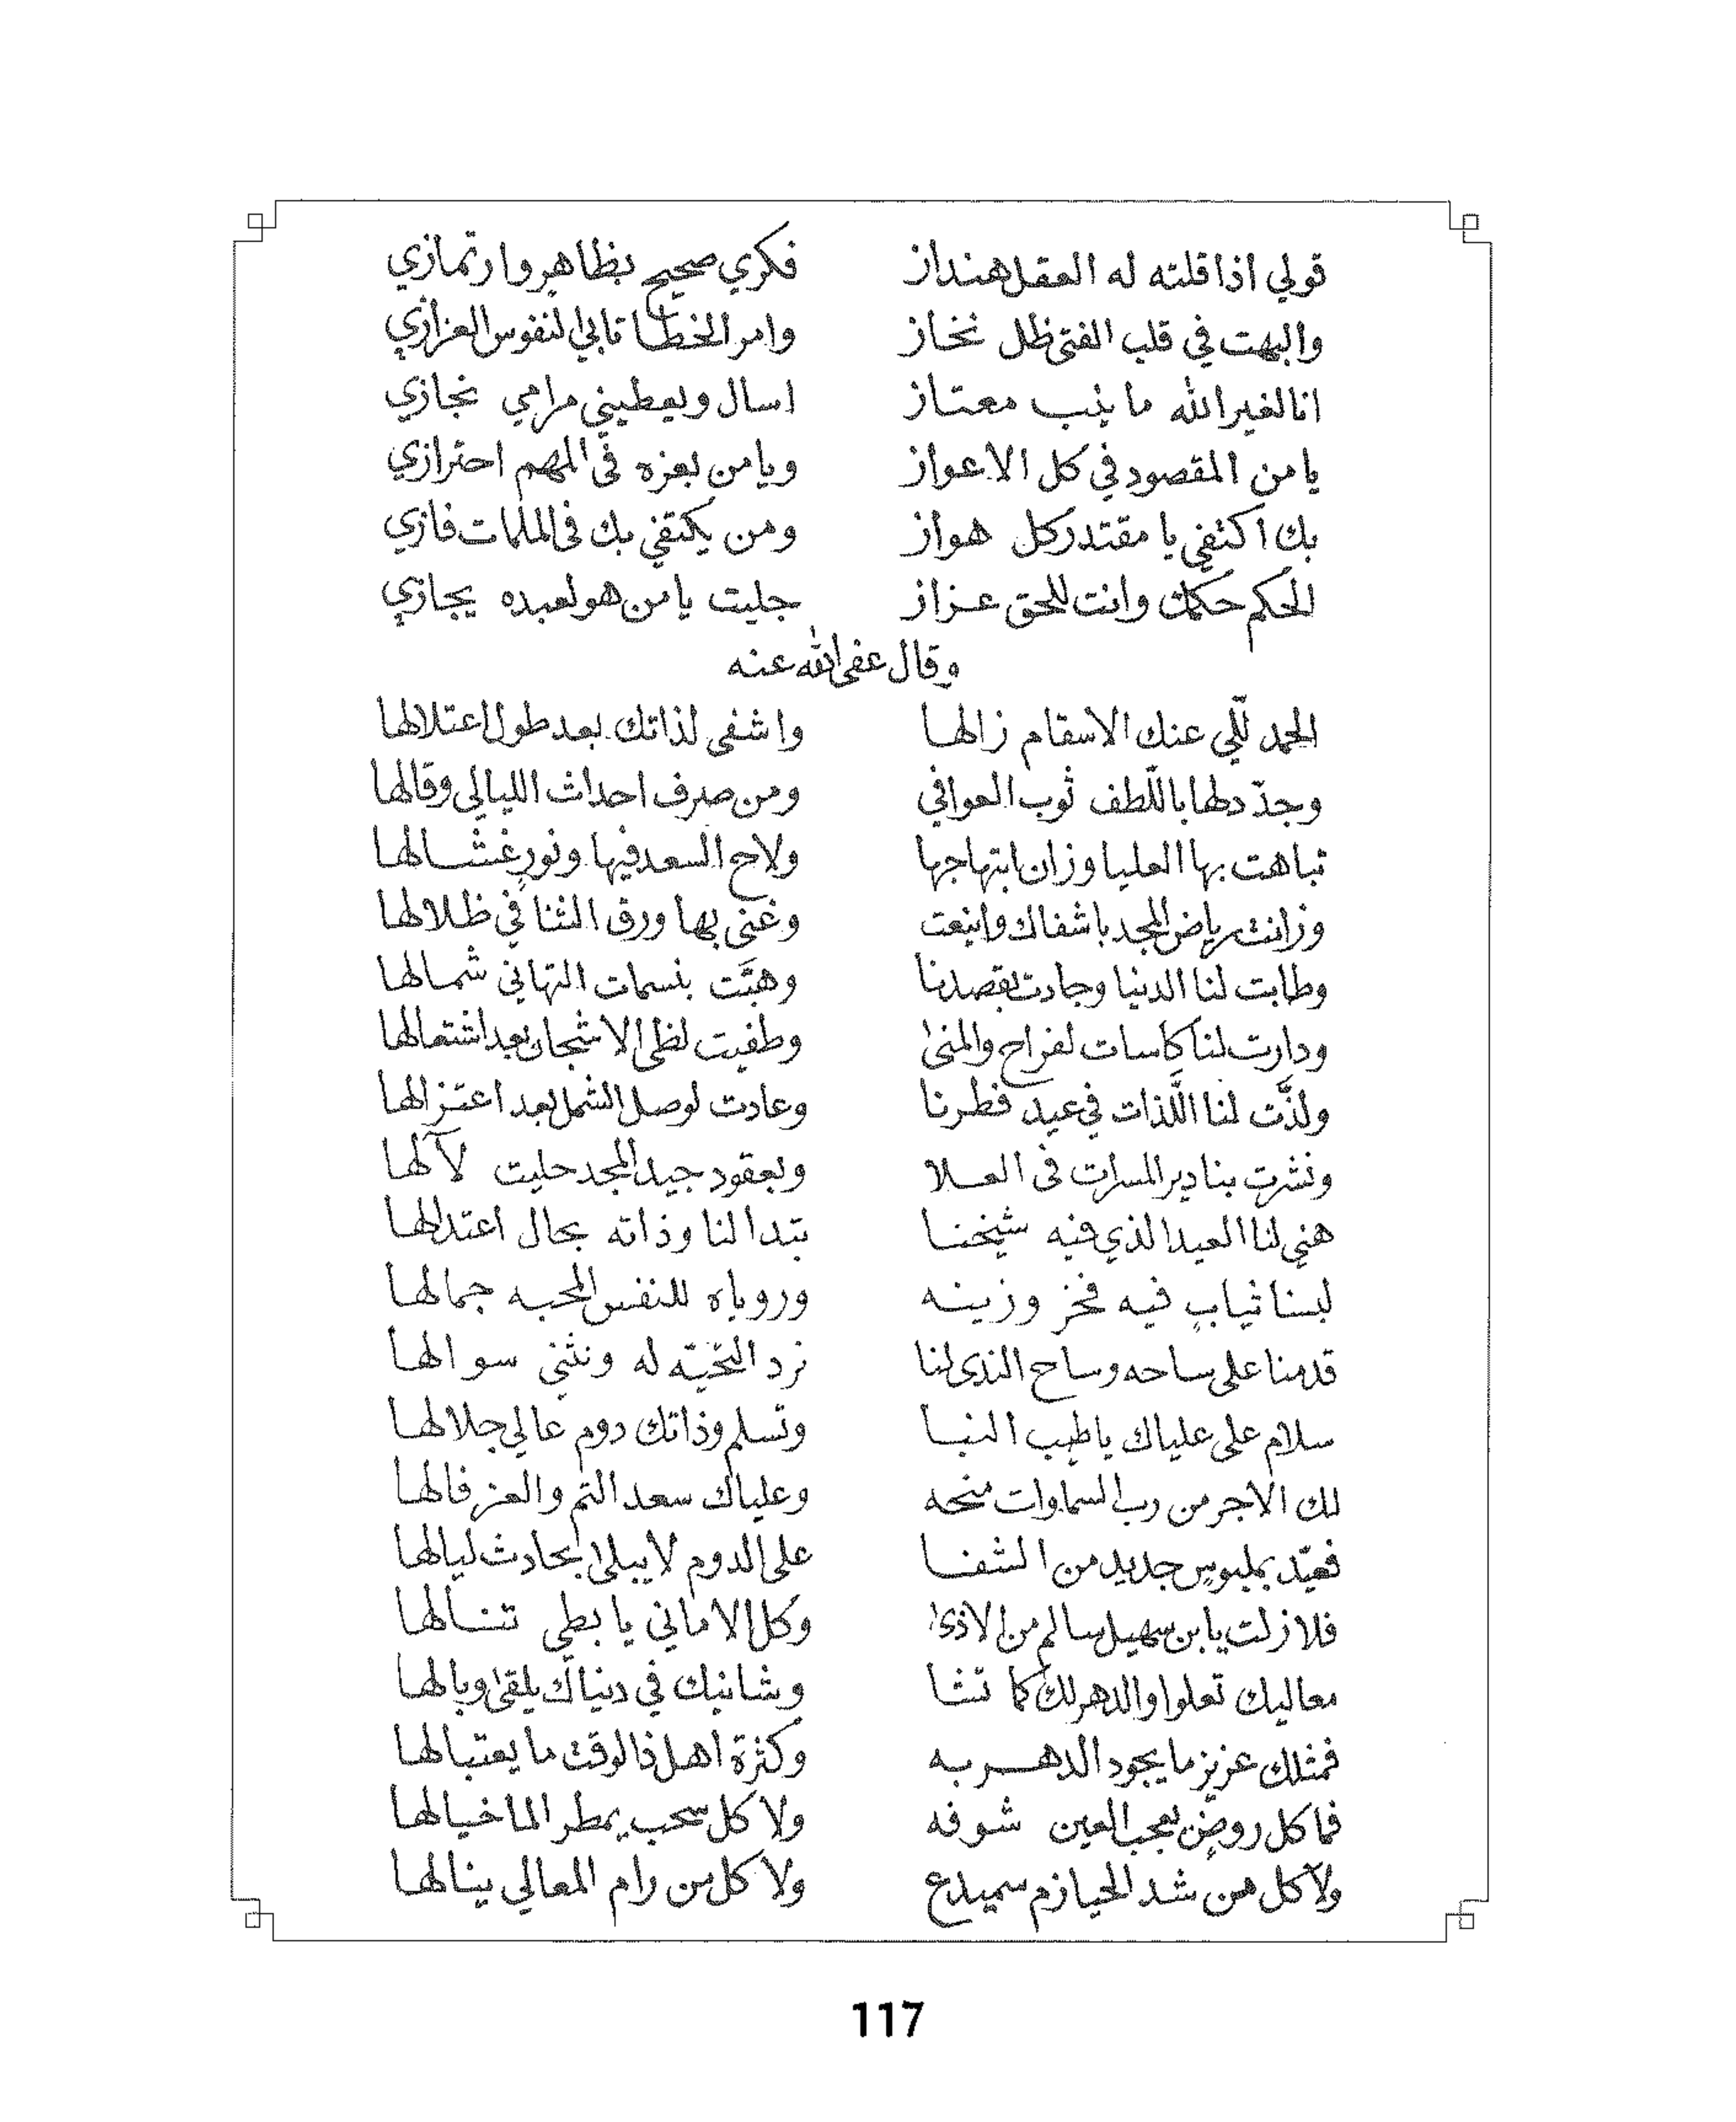 قولي اذا قلته له العقل هنداز فكري صحيح بظاهر وارتمازي
والبهت في قلب الفتى ظل نخاز وامر الخطا تابى النفوس العزازي
انا لغير الله ما ينب معتاز اسال ويعطيني مرامي نجازي
يا من المقصود في كل الاعواز ويا من بعزه فى المهم احترازي
بك اكتفي يا مقتدر كل هواز ومن يكتفي بك فى الملمات فازي
الحكم حكمك وانت للحق عزاز جليت يا من هو لعبده يجازي
وقال عفى الله عنه
الحمد للّي عنك الاسقام زالها واشفى لذاتك بعد طول اعتلالها
وجدّد لها باللّطف ثوب العوافي ومن صرف احداث الليالي وقالها
تباهت بها العليا وزان ابتهاجها ولاح السعد فيها ونورٍ غشالها
وزانت رياض المجد باشفاك وانيعت وغنى بها ورق الثنا في ظلالها
وطابت لنا الدنيا وجادت بقصدنا وهبَّت بنسمات التهاني شمالها
ودارت لنا كاسات لفراح والمنىٰ وطفيت لظى الاشجان بعد اشتعالها
ولذَّت لنا اللَّذات في عيد فطرنا وعادت لوصل الشمل بعد اعتزالها
ونشرت بنا دير المسرات فى العلا وبعقود جيد المجد حليت لآلها
هني لنا العيد الذي فيه شيخنا تبدا لنا وذاته بحال اعتدالها
لبسنا ثيابٍ فيه فخر وزينه وروياه للنفس المحبه جمالها
قدمنا على ساحه وساح الندى لنا نرد التحيّه له ونثني سوالها
سلام على علياك يا طيب النبا وتسلم وذاتك دوم عالي جلالها
لك الاجر من رب السماوات منحه وعلياك سعد التم والعز فالها
فعيّد بملبوسٍ جديد من الشفا على الدوم لا يبلىٰ بحادث ليالها
فلا زلت يابن سهيل سالم من الاذىٰ وكل الاماني يا بطي تنالها
معاليك تعلوا والدهر لك كما تشا وشانيك في دنياك يلقىٰ وبالها
فمثلك عزيز ما يجود الدهر به وكثرة اهل ذا الوقت ما يعتبالها
فما كل روضٍ يعجب العين شوفه ولا كل سحب يمطر الما خيالها
ولا كل من شد الحيازم سميدع ولا كل من رام المعالي ينالها
117